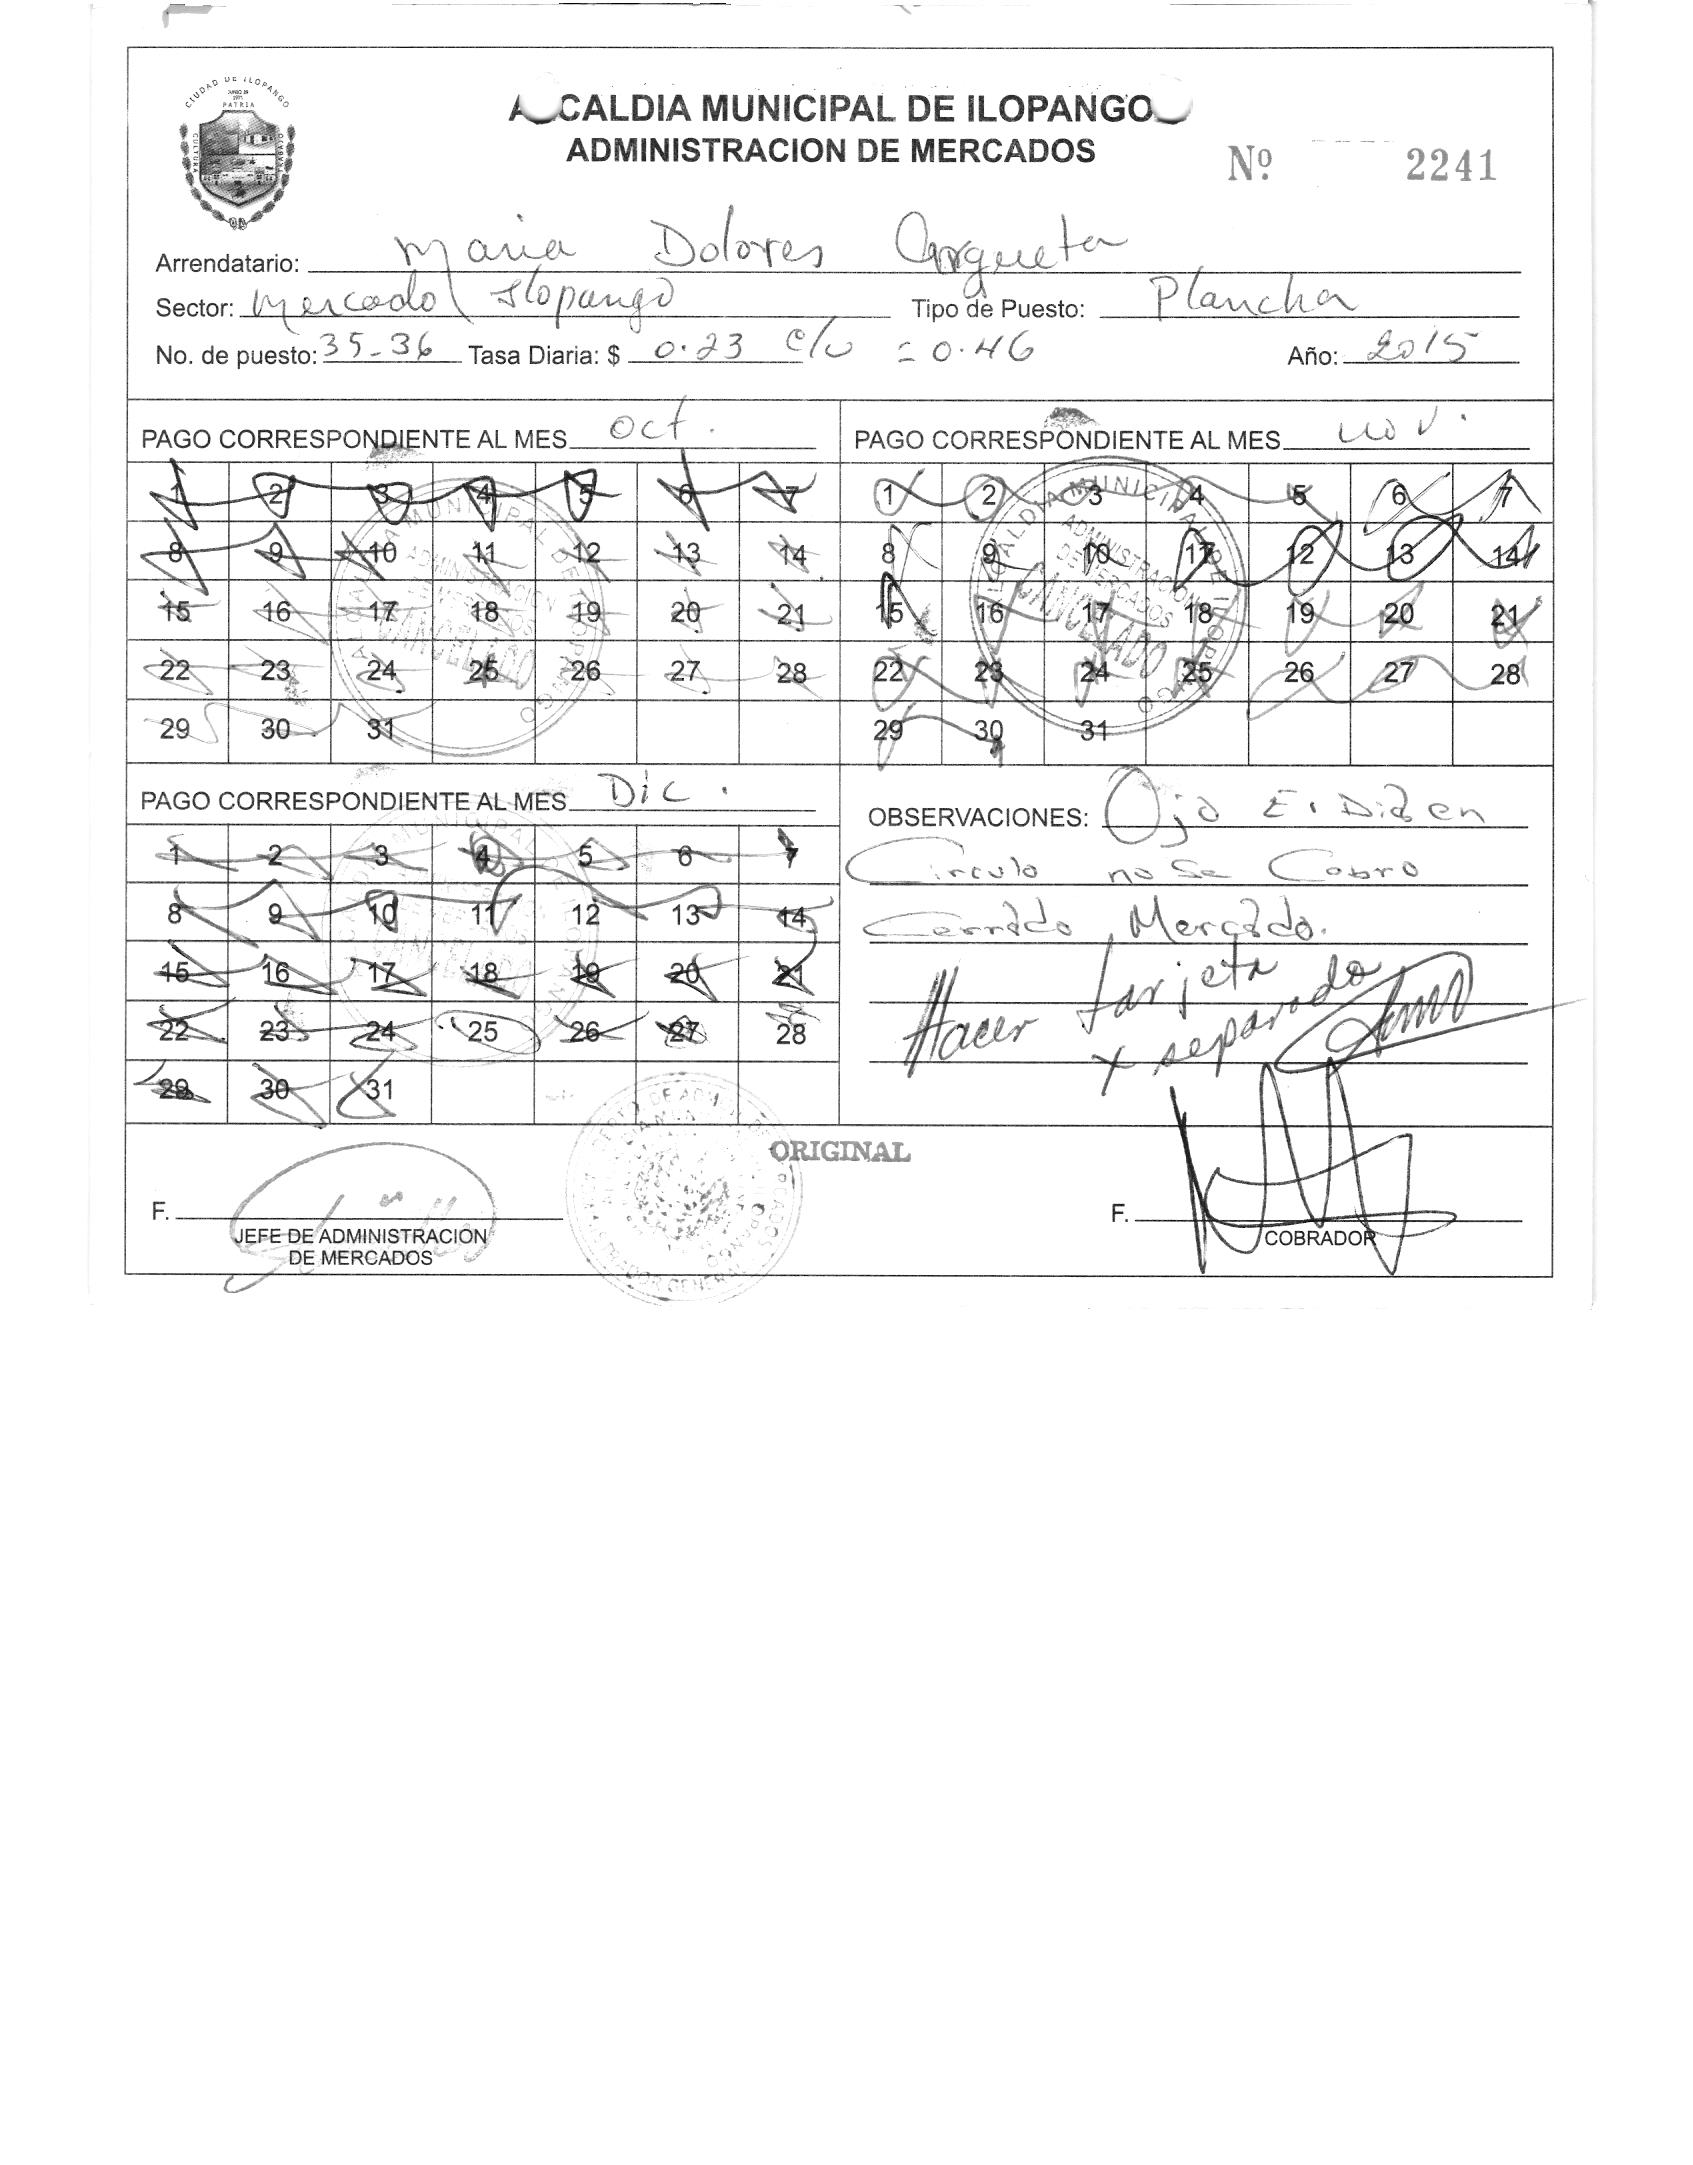 ALCALDIA MUNICIPAL DE ILOPANGO
ADMINISTRACION DE MERCADOS
CIUDAD DE ILOPANGO
PATRIA
CULTURA
Nº 2241
Arrendatario: Maria Dolores Argueta
Sector: Mercado Ilopango Tipo de Puesto: Plancha
No. de puesto: 35-36 Tasa Diaria: $ 0.23 c/u = 0.46 Año: 2015
PAGO CORRESPONDIENTE AL MES Oct.
1 2 3 4 5 6 7
8 9 10 11 12 13 14
15 16 17 18 19 20 21
22 23 24 25 26 27 28
29 30 31
ALCALDIA MUNICIPAL DE ILOPANGO
ADMINISTRACION
DE MERCADOS
CANCELADO
PAGO CORRESPONDIENTE AL MES Nov.
1 2 3 4 5 6 7
8 9 10 11 12 13 14
15 16 17 18 19 20 21
22 23 24 25 26 27 28
29 30 31
ALCALDIA MUNICIPAL DE ILOPANGO
ADMINISTRACION
DE MERCADOS
CANCELADO
PAGO CORRESPONDIENTE AL MES Dic.
1 2 3 4 5 6 7
8 9 10 11 12 13 14
15 16 17 18 19 20 21
22 23 24 25 26 27 28
29 30 31
OBSERVACIONES: Ojo E. Dia en
Circulo no Se Cobro
Cerrado Mercado.
Hacer tarjeta
x separado
ORIGINAL
F.
JEFE DE ADMINISTRACION
DE MERCADOS
F.
COBRADOR